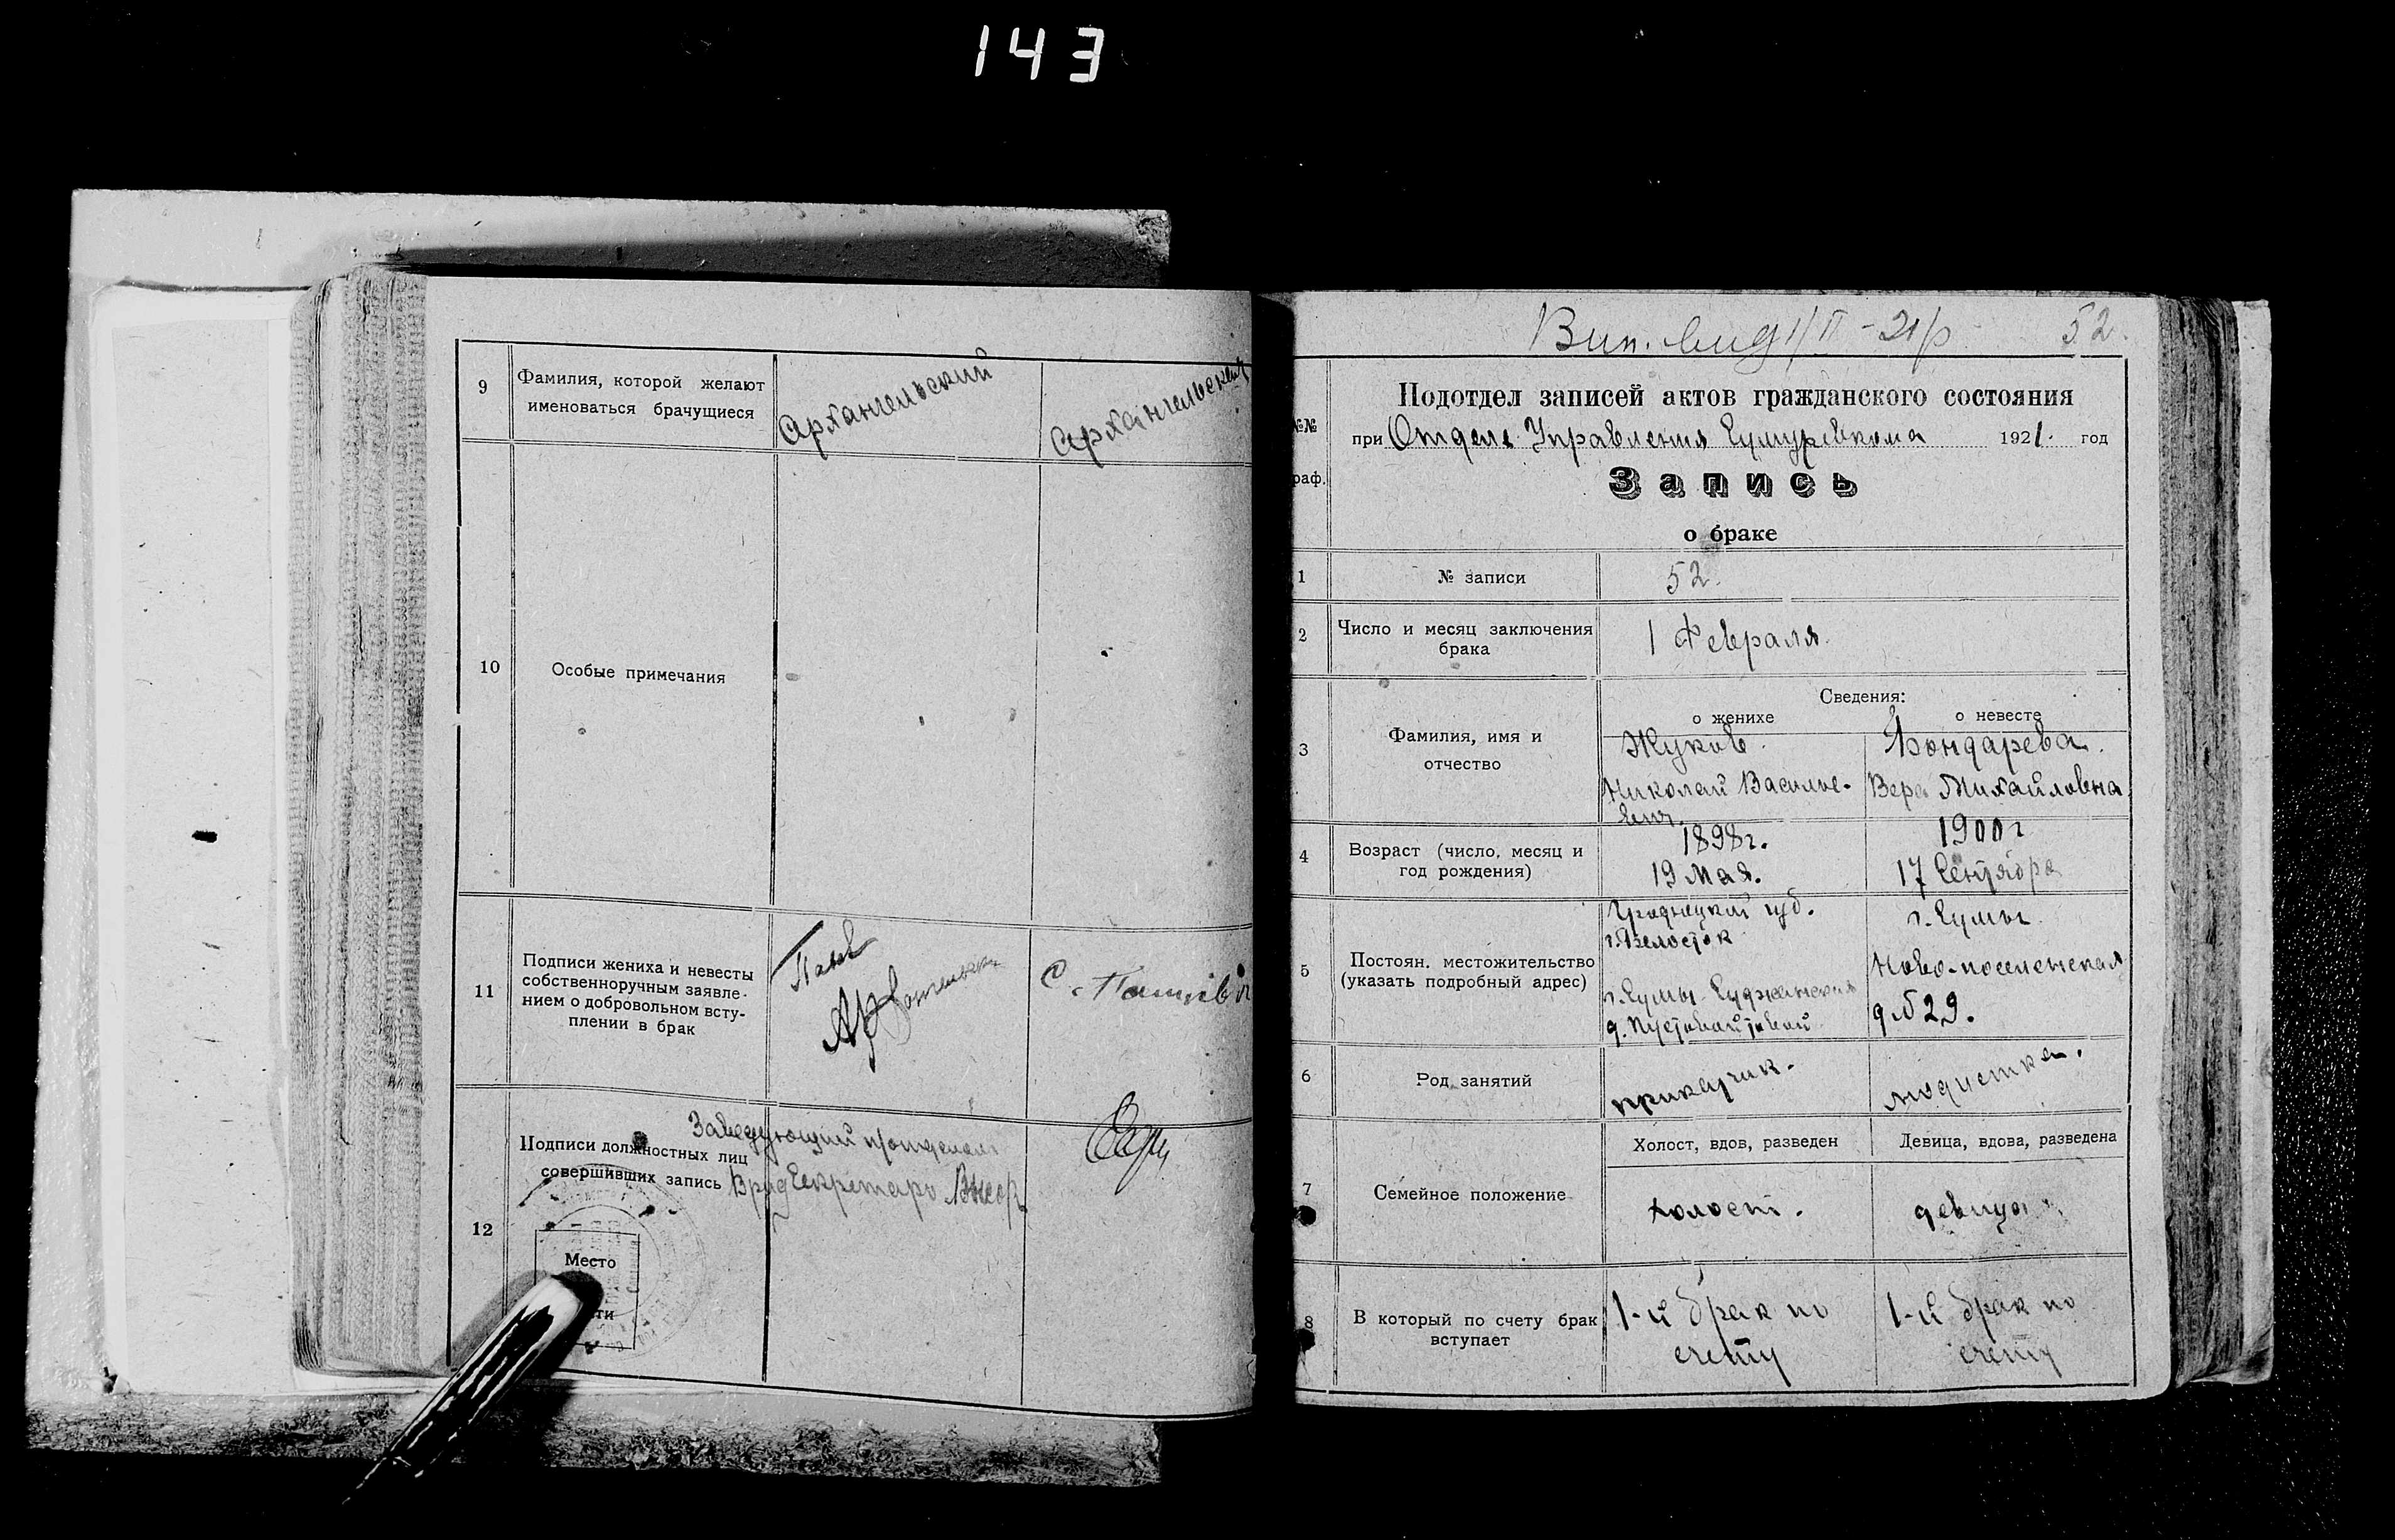 143
9
Фамилия, которой желают
именоваться брачущиеся
Архангельский
Архангельская
10
Особые примечания
11
Подписи жениха и невесты
собственноручным заявле-
нием о добровольном всту-
плении в брак
С.
12
Подписи должностных лиц
совершивших запись
Заведующий п/отделом
Врид Секретаря
Место
ти
52.
№№
раф.
Подотдел записей актов гражданского состояния
при Отделе Управления Сумуревкома 1921. год
Запись
о браке
1
№ записи
52.
2
Число и месяц заключения
брака
1 Февраля.
3
Фамилия, имя и
отчество
Сведения:
о женихе
о невесте
Жуков.
Николай Василье-
вич.
Бондарева.
Вера Михайловна
4
Возраст (число, месяц и
год рождения)
1898г.
19 Мая.
1900г
17 Сентября
5
Постоян. местожительство
(указать подробный адрес)
губ.
г. Белосток
г. Сумы Суджанская
д. Пустовойтовой.
г. Сумы.
Ново-поселенская
д № 29.
6
Род занятий
приказчик.
модистка.
7
Семейное положение
Холост, вдов, разведен
Девица, вдова, разведена
холост.
девица
8
В который по счету брак
вступает
1-й брак по
счету
1-й брак по
счету